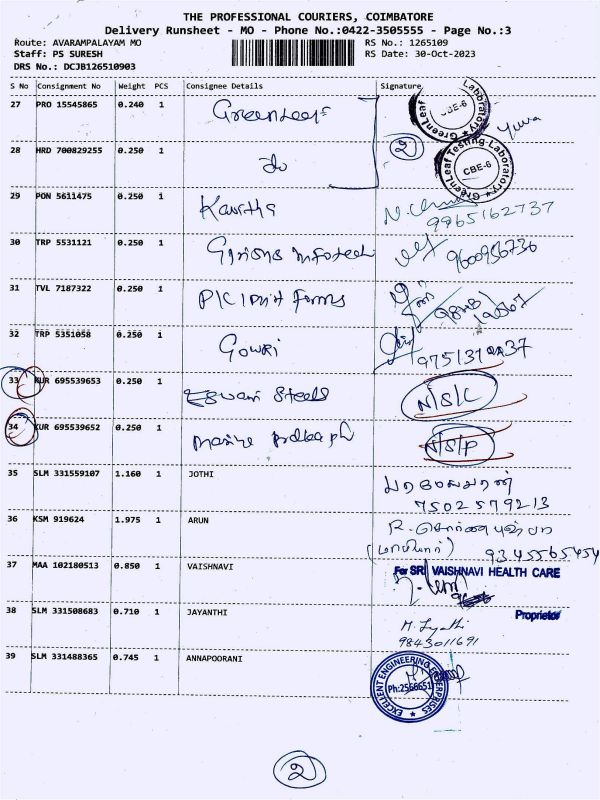 THE PROFESSIONAL COURIERS, COIMBATORE
Delivery Runsheet - MO - Phone No.:0422-3505555 - Page No.:3
Route: AVARAMPALAYAM MO RS No.: 1265109
Staff: PS SURESH RS Date: 30-Oct-2023
DRS No.: DCJB126510903
S No Consignment No Weight PCS Consignee Details Signature
27 PRO 15545865 0.240 1 GreenLeaf GreenLeaf Testing Laboratory CBE-6 yuva
28 HRD 700829255 0.250 1 do 2 GreenLeaf Testing Laboratory CBE-6
29 PON 5611475 0.250 1 Kavitha 9965162737
30 TRP 5531121 0.250 1 Infotech 9600936736
31 TVL 7187322 0.250 1 Forms
32 TRP 5351058 0.250 1 Gowri
33 KUR 695539653 0.250 1 Eswari Steels N/S/C
34 KUR 695539652 0.250 1 N/S/P
35 SLM 331559107 1.160 1 JOTHI
7502579213
36 KSM 919624 1.975 1 ARUN
9345565454
37 MAA 102180513 0.850 1 VAISHNAVI For SRI VAISHNAVI HEALTH CARE
Proprietor
38 SLM 331508683 0.710 1 JAYANTHI M. Jyothi
9843011691
39 SLM 331488365 0.745 1 ANNAPOORANI EXCELLENT ENGINEERING ENTERPRISES Ph:2566651
2